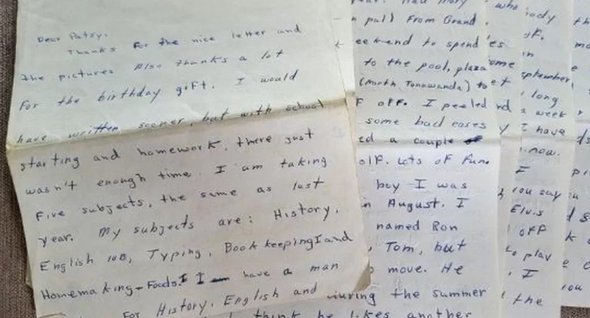 Dear Patsy,
Thanks for the nice letter and
the pictures Also thanks a lot
for the birthday gift. I would
have written sooner, but with school
starting and homework, there just
wasn't enough time. I am taking
five subjects, the same as last
year. My subjects are: History,
English 10B, Typing, Book keeping I and
Homemaking-Foods I I have a man
For History, English and
pall From Grand
eekend to spend
to the pool, plaza
(North Tonawanda) to
F off. I pealed
some bad cases
ed a couple
olf. Lots of fun.
boy I was
in August. I
named Ron
, Tom, but
move. He
during the summer
think he likes another
who
es
ome
et
rd
s
y
iody
of.
eptember
long
a week
I have
now.
I
you say
Elvis
off
to play
I
the